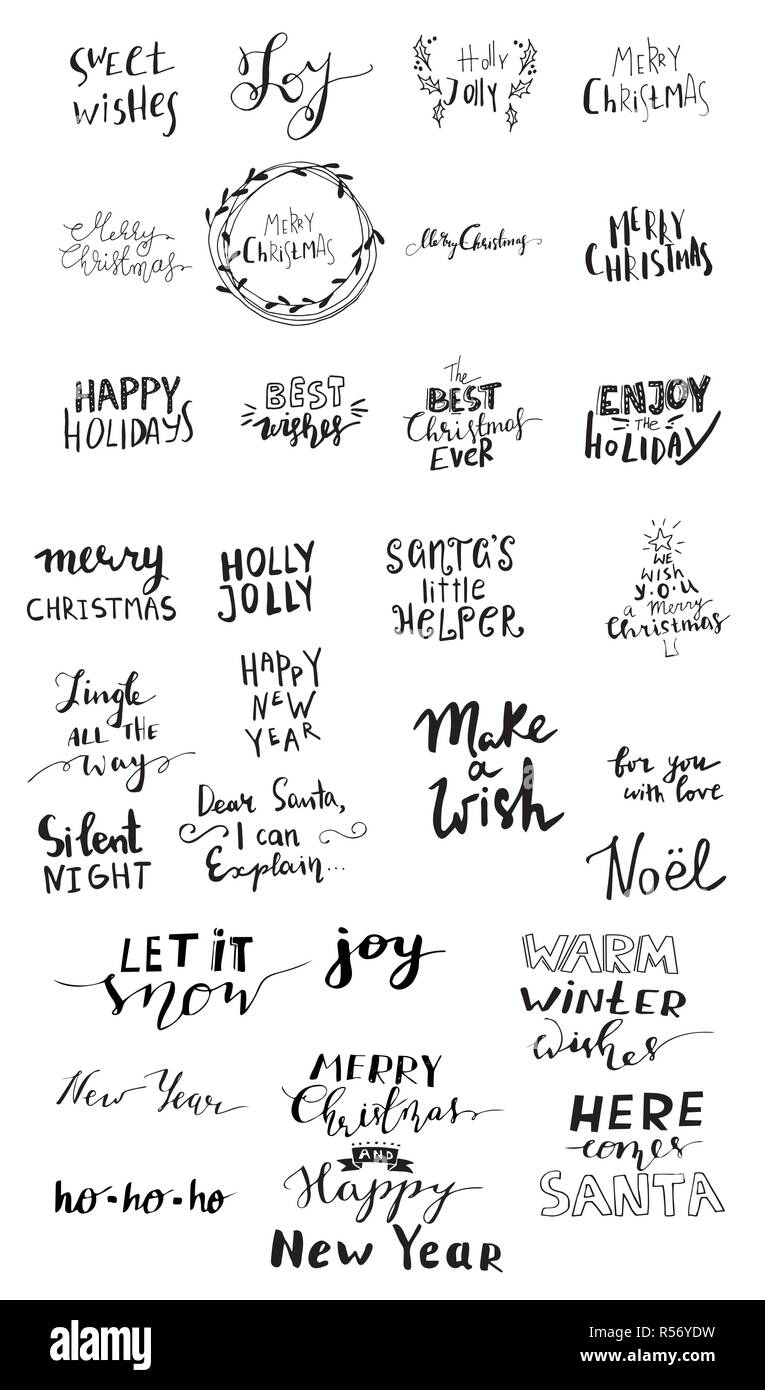 SWEET
WISHES
Joy
Holly
Jolly
MERRY
CHRISTMAS
Merry
Christmas
MERRY
CHRISTMAS
Merry Christmas
MERRY
CHRISTMAS
HAPPY
HOLIDAYS
BEST
wishes
The
BEST
Christmas
EVER
ENJOY
THE
HOLIDAY
merry
CHRISTMAS
HOLLY
JOLLY
SANTA'S
little
HELPER
WE
WISH
Y.O.U
a Merry
Christmas
Jingle
ALL THE
way
HAPPY
NEW
YEAR
Make
a
Wish
for you
with love
Silent
NIGHT
Dear Santa,
I can
Explain...
Noël
LET IT
snow
joy
WARM
WINTER
wishes
New Year
MERRY
Christmas
AND
Happy
New Year
HERE
comes
SANTA
ho-ho-ho
alamy
Image ID: R56YDW
www.alamy.com